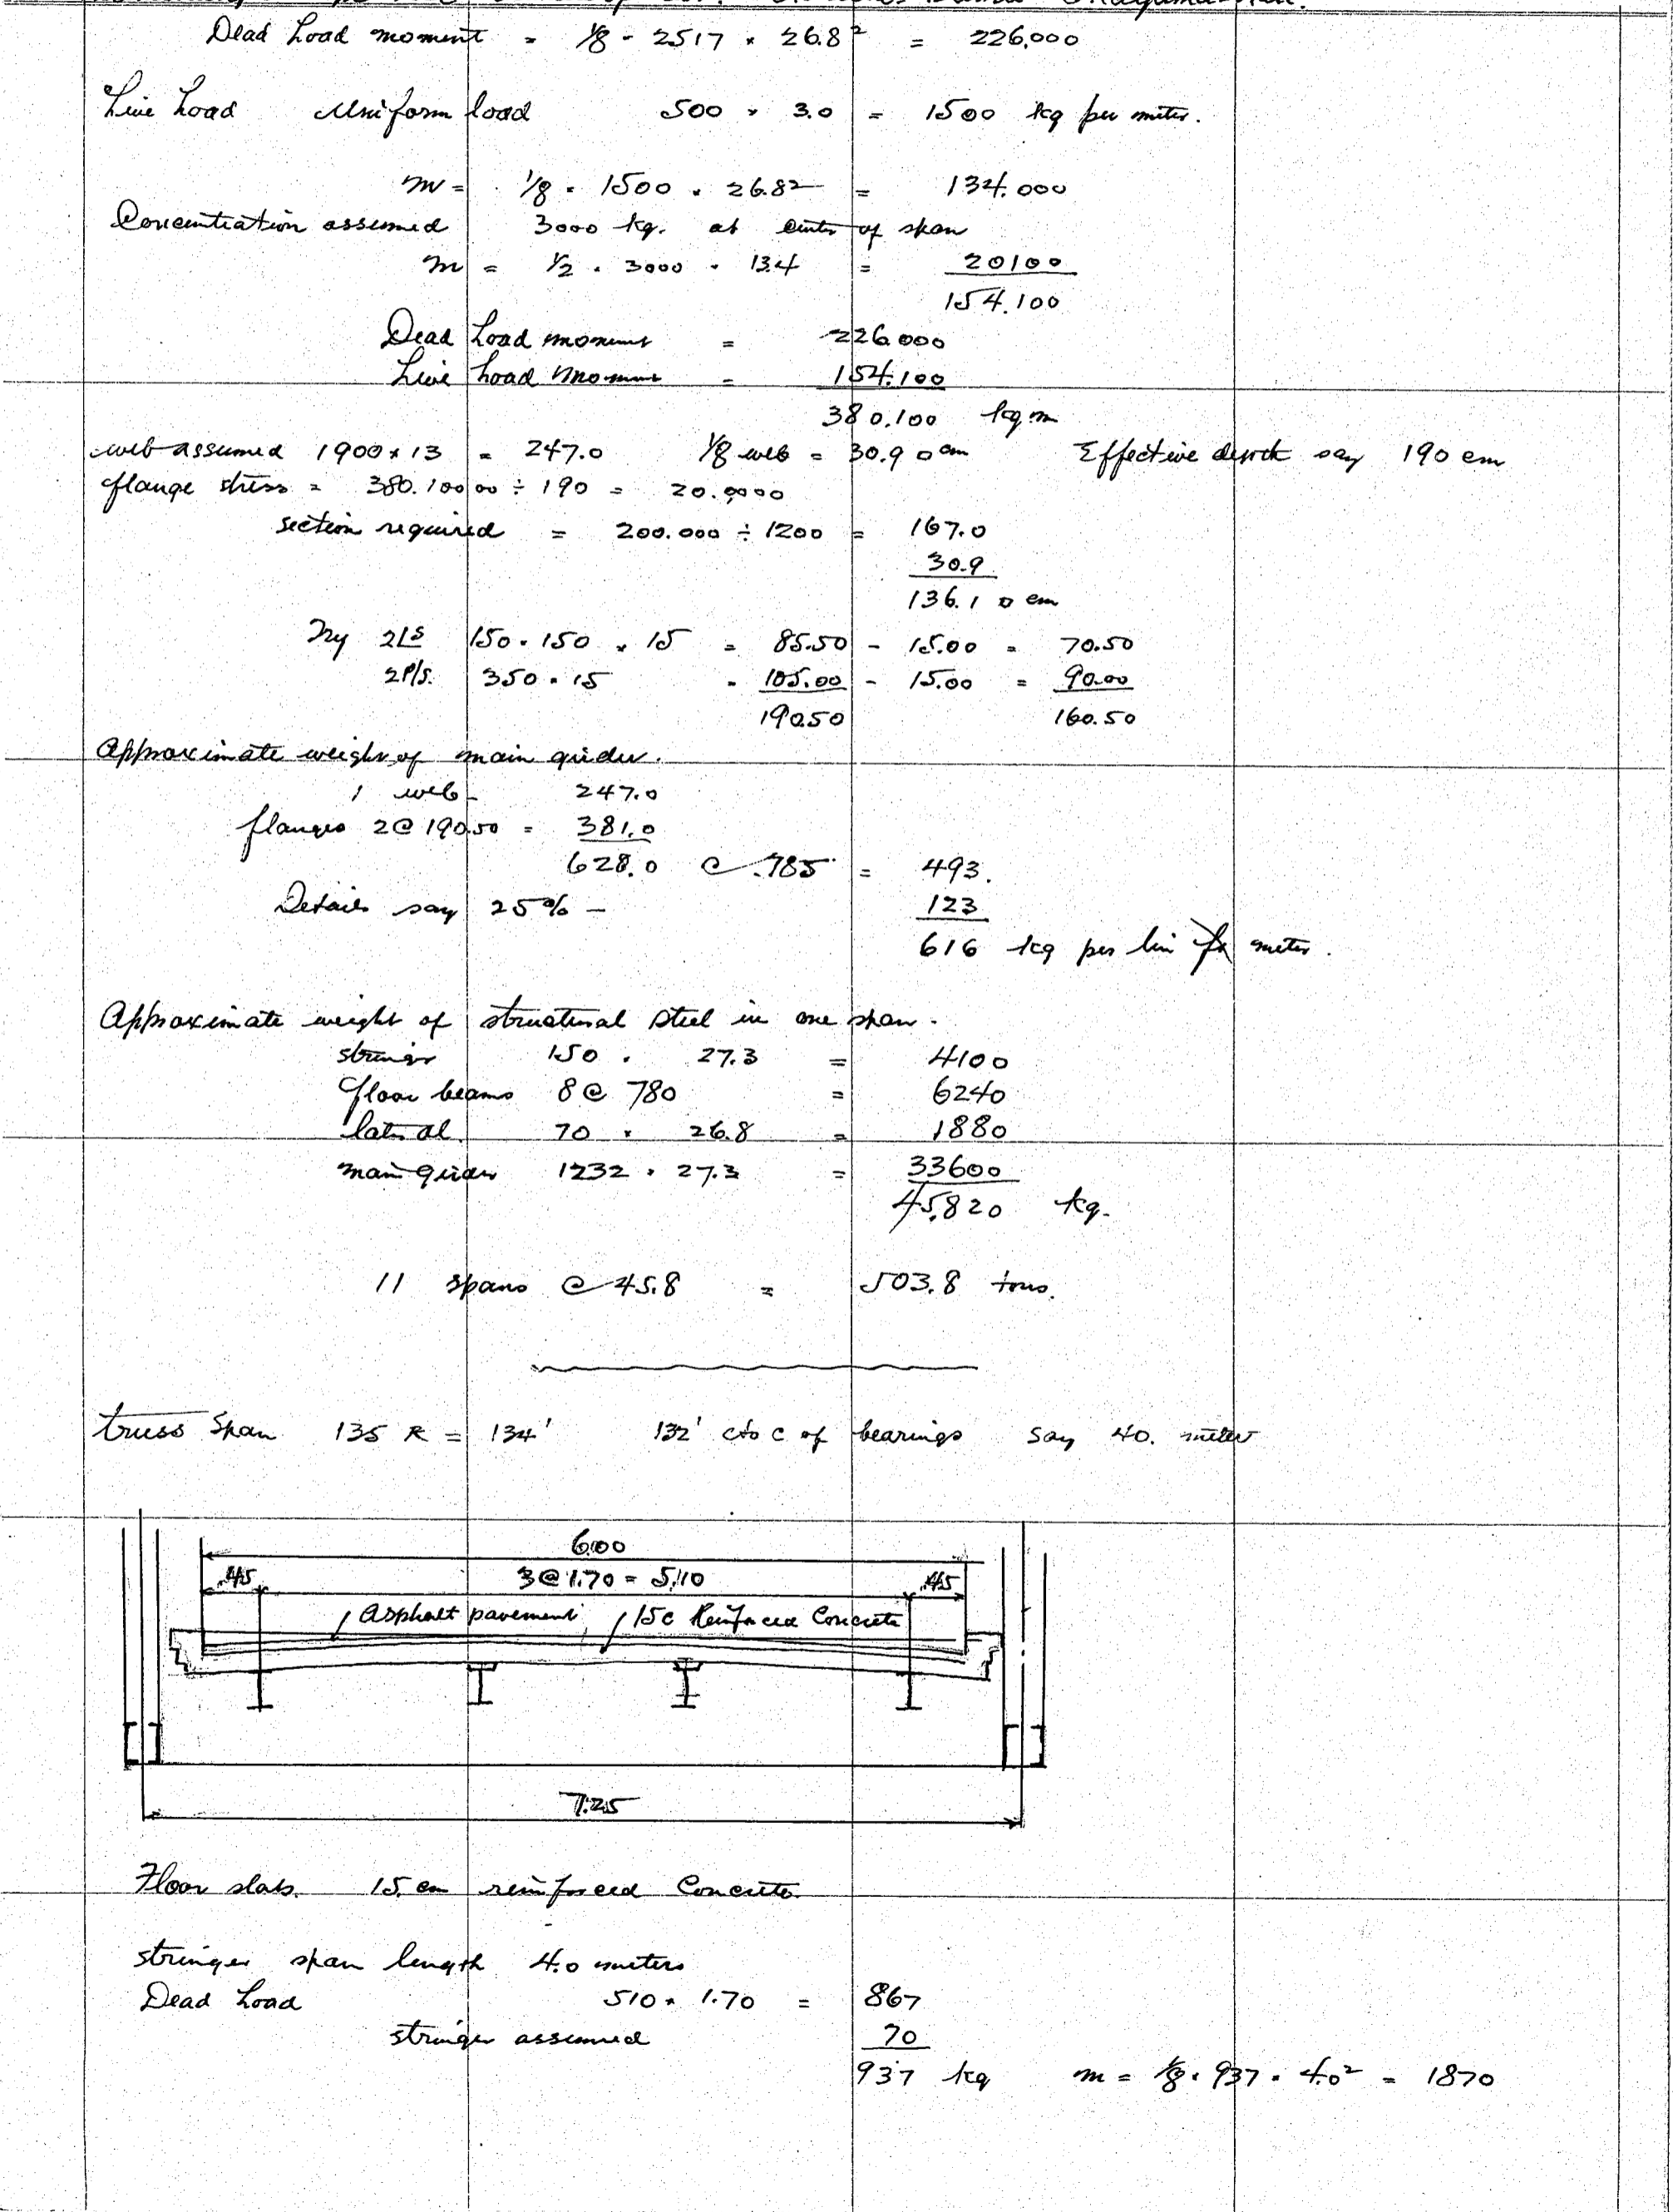 Okayama-Ken.
Dead Load moment = 1/8 · 2517 × 26.8² = 226,000
Live Load Uniform load 500 × 3.0 = 1500 kg per meter.
m = 1/8 · 1500 × 26.8² = 134.000
Concentration assumed 3000 kg. at center of span
m = 1/2 · 3000 · 13.4 = 20100
154.100
Dead Load moment = 226.000
Live Load Moment = 154.100
380.100 kg m
web assumed 1900 × 13 = 247.0 1/8 web = 30.9 □ cm Effective depth say 190 cm
flange stress = 380.100 00 ÷ 190 = 20.0000
section required = 200.000 ÷ 1200 = 167.0
30.9
136.1 □ cm
Try 2Ls 150 · 150 × 15 = 85.50 - 15.00 = 70.50
2Pls. 350 · 15 = 105.00 - 15.00 = 90.00
190.50 160.50
Approximate weight of main girder.
1 web 247.0
flanges 2 @ 190.50 = 381.0
628.0 @ .785 = 493.
Details say 25% - 123
616 kg per lin meter.
Approximate weight of structural steel in one span.
stringer 150 · 27.3 = 4100
floor beams 8 @ 780 = 6240
lateral 70 · 26.8 = 1880
main girder 1232 · 27.3 = 33600
45,820 kg.
11 spans @ 45.8 = 503.8 tons.
truss Span 135 R = 134' 132' c to c of bearings say 40. meter
6.00
.45 3@1.70 = 5.10 .45
Asphalt pavement, 15c Reinforced Concrete
7.25
Floor slab. 15 cm reinforced Concrete.
stringer span length 4.0 meters
Dead Load 510 × 1.70 = 867
stringer assumed 70
937 kg m = 1/8 · 937 · 4.0² = 1870